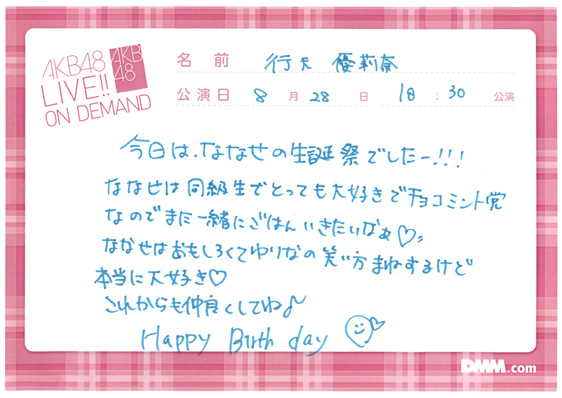 AKB48
LIVE!!
ON DEMAND
AKB
48
名前 行天 優莉奈
公演日 8月28日 18:30公演
今日は、ななせの生誕祭でしたー!!!
ななせは同級生でとっても大好きでチョコミント党
なのでまた一緒にごはんいきたいなぁ♡〃
ななせはおもしろくてゆりなの笑い方まねするけど
本当に大好き♡
これからも仲良くしてね♪
Happy Birth day
DMM.com